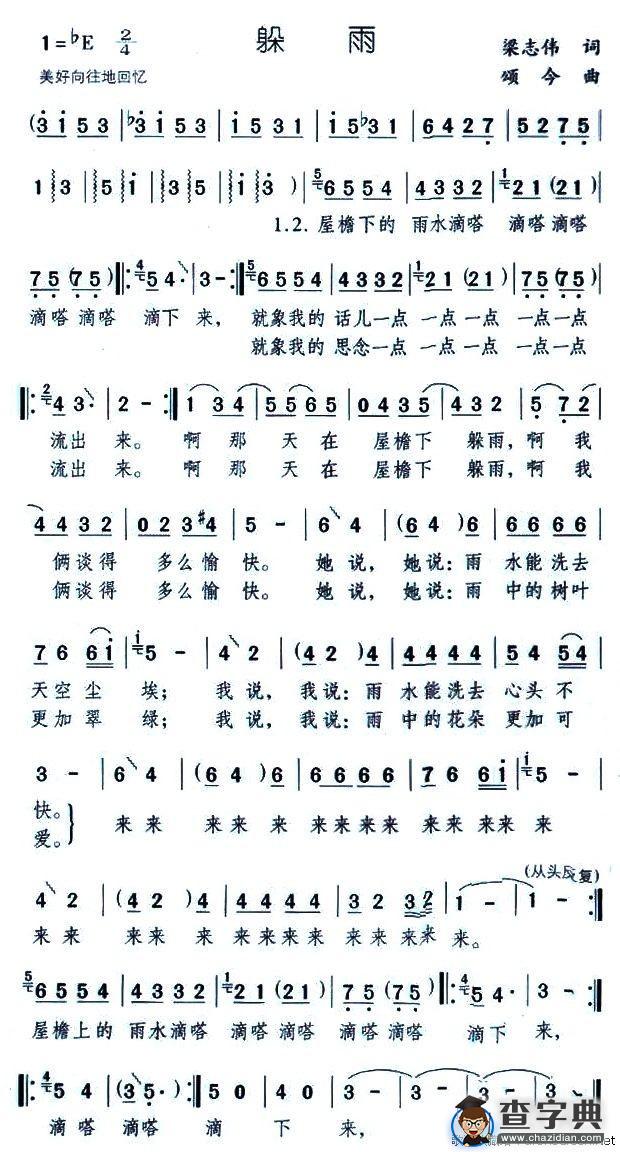 1=♭E 2/4 躲 雨 梁志伟 词
美好向往地回忆 颂 今 曲
(3 i 5 3 | ♭3 i 5 3 | i 5 3 1 | i 5 ♭3 1 | 6 4 2 7 | 5 2 7 5 |
1 3 | 5 i | i 3 | 3 5 | i 3) | 6 5 5 4 | 4 3 3 2 | 2 1 (2 1) |
1.2. 屋檐下的 雨水滴嗒 滴嗒滴嗒
7 5 (7 5) |: 5 4· | 3 - :| 6 5 5 4 | 4 3 3 2 | 2 1 (2 1) | 7 5 (7 5) |
滴嗒滴嗒 滴下 来, 就象我的 话儿一点 一点一点 一点一点
就象我的 思念一点 一点一点 一点一点
|: 4 3· | 2 - :| 1 3 4 | 5 5 6 5 | 0 4 3 5 | 4 3 2 | 5 7 2 |
流出 来。 啊那 天在 屋檐下 躲雨,啊我
流出 来。 啊那 天在 屋檐下 躲雨,啊我
4 4 3 2 | 0 2 3 #4 | 5 - | 6 4 | (6 4) 6 | 6 6 6 6 |
俩谈得 多么愉 快。 她说, 她说:雨 水能洗去
俩谈得 多么愉 快。 她说, 她说:雨 中的树叶
7 6 6 i | 5 - | 4 2 | (4 2) 4 | 4 4 4 4 | 5 4 5 4 |
天空尘 埃; 我说, 我说:雨 水能洗去 心头不
更加翠 绿; 我说, 我说:雨 中的花朵 更加可
3 - | 6 4 | (6 4) 6 | 6 6 6 6 | 7 6 6 i | 5 - |
快。
爱。
来来 来来 来 来来来来 来来来 来
4 2 | (4 2) 4 | 4 4 4 4 | 3 2 3 2 | 1 - | 1 - :|
(从头反复)
来来 来来 来 来来来来 来来来来 来。
6 5 5 4 | 4 3 3 2 | 2 1 (2 1) | 7 5 (7 5) |: 5 4· | 3 - :|
屋檐上的 雨水滴嗒 滴嗒滴嗒 滴嗒滴嗒 滴下 来,
|: 5 4 | (3 5·) :| 5 0 | 4 0 | 3 - | 3 - | 3
滴嗒 滴嗒 滴 下 来,
查字典
www.chazidian.com